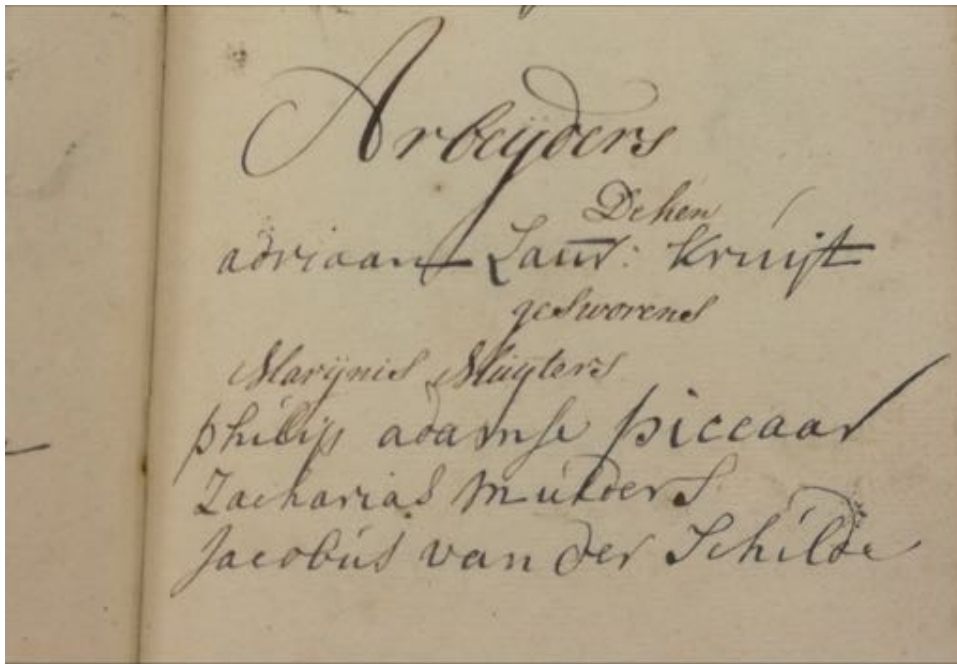 Arbeijders
Deken
adriaan Laur: Kruijt
gesworens
Marijnis Sluijters
philip adamse piccaar
Zacharias Mulders
Jacobus van der Schilde